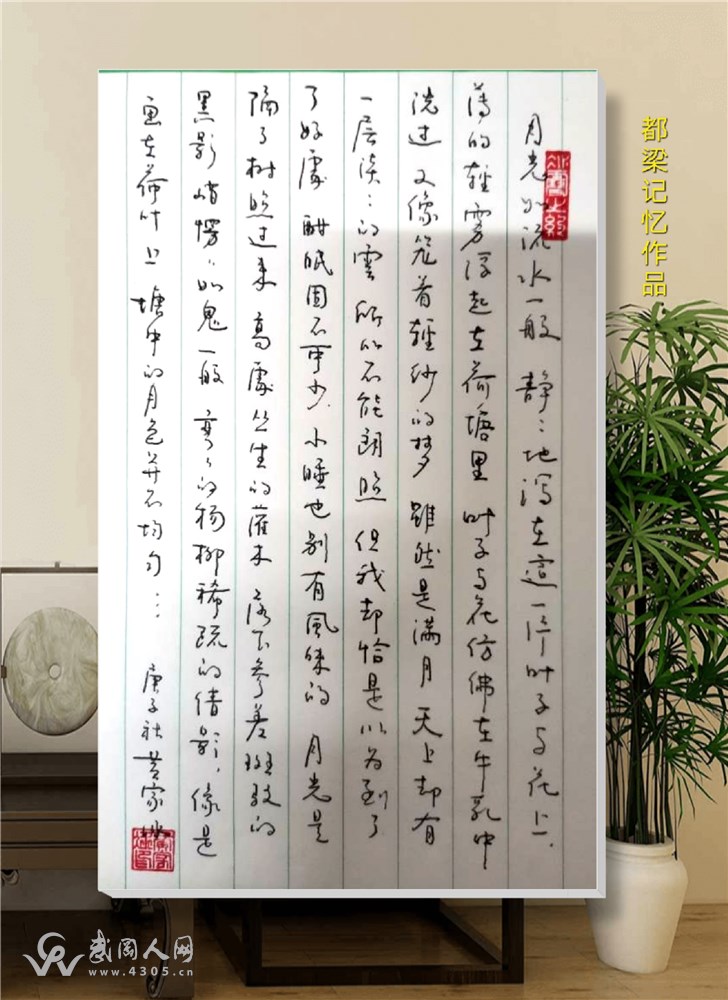 都梁记忆作品
月光如流水一般 静:地泻在這一片叶子与花上.
薄的輕雾浮起在荷塘里 叶子与花仿佛在牛乳中
洗过 又像笼着輕纱的梦 雖然是满月 天上却有
一层淡:的雲 所以不能朗照 但我却恰是以为到了
了好處 酣眠固不可少 小睡也别有風味的 月光是
隔了树照过来 高處丛生的灌木 落下参差斑驳的
黑影 峭愣:如鬼一般 弯:的杨柳稀疏的倩影,像是
画在荷叶上 塘中的月色并不均匀… 庚子 黄家
武冈人网
www.4305.cn